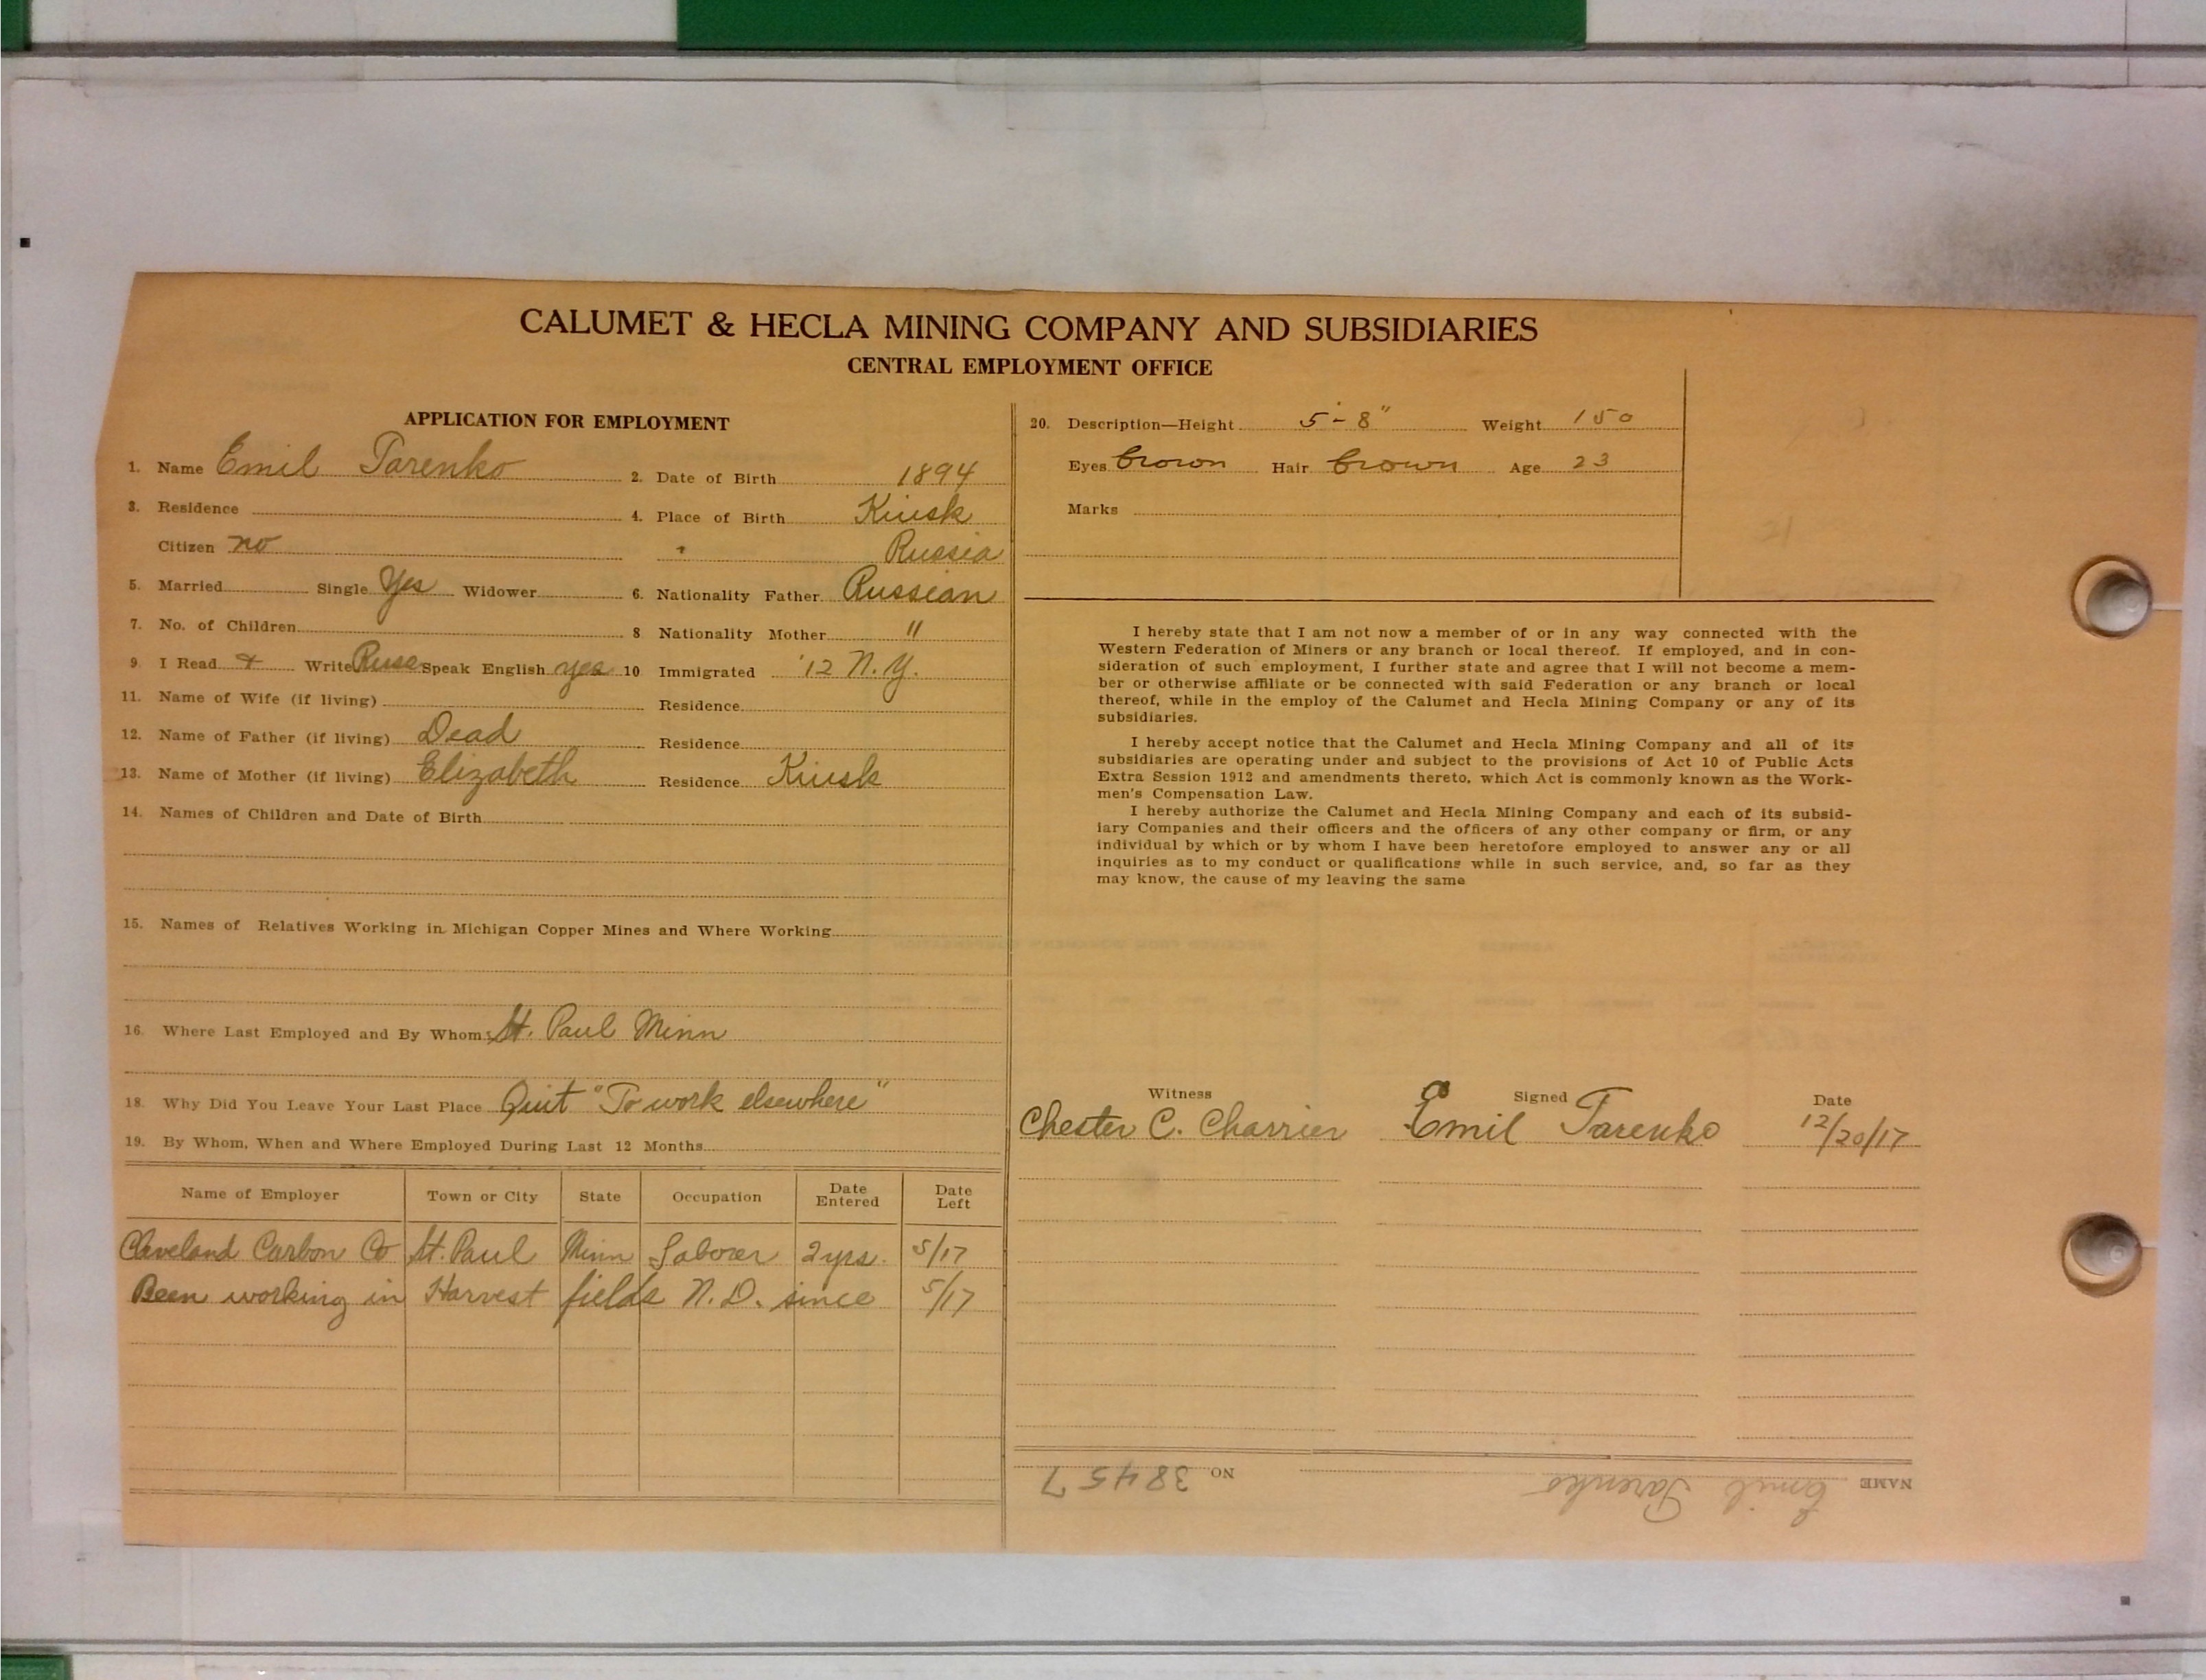 CALUMET & HECLA MINING COMPANY AND SUBSIDIARIES
CENTRAL EMPLOYMENT OFFICE
APPLICATION FOR EMPLOYMENT
1. Name Emil Tarenko 2. Date of Birth 1894
3. Residence 4. Place of Birth Kiusk
Citizen no Russia
5. Married Single Yes Widower 6. Nationality Father Russian
7. No. of Children 8 Nationality Mother "
9. I Read + Write Russ Speak English yes 10 Immigrated '12 N.Y.
11. Name of Wife (if living) Residence
12. Name of Father (if living) Dead Residence
13. Name of Mother (if living) Elizabeth Residence Kiusk
14. Names of Children and Date of Birth
15. Names of Relatives Working in Michigan Copper Mines and Where Working
16. Where Last Employed and By Whom St. Paul Minn
18. Why Did You Leave Your Last Place Quit "To work elsewhere"
19. By Whom, When and Where Employed During Last 12 Months
Name of Employer Town or City State Occupation Date Entered Date Left
Cleveland Carbon Co St. Paul Minn Laborer 2 yrs. 5/17
Been working in Harvest fields N.D. since 5/17
20. Description—Height 5'-8" Weight 150
Eyes brown Hair brown Age 23
Marks
I hereby state that I am not now a member of or in any way connected with the
Western Federation of Miners or any branch or local thereof. If employed, and in con-
sideration of such employment, I further state and agree that I will not become a mem-
ber or otherwise affiliate or be connected with said Federation or any branch or local
thereof, while in the employ of the Calumet and Hecla Mining Company or any of its
subsidiaries.
I hereby accept notice that the Calumet and Hecla Mining Company and all of its
subsidiaries are operating under and subject to the provisions of Act 10 of Public Acts
Extra Session 1912 and amendments thereto, which Act is commonly known as the Work-
men's Compensation Law.
I hereby authorize the Calumet and Hecla Mining Company and each of its subsid-
iary Companies and their officers and the officers of any other company or firm, or any
individual by which or by whom I have been heretofore employed to answer any or all
inquiries as to my conduct or qualifications while in such service, and, so far as they
may know, the cause of my leaving the same
Witness Signed Date
Chester C. Charrier Emil Tarenko 12/20/17
NAME Emil Tarenko NO 38457